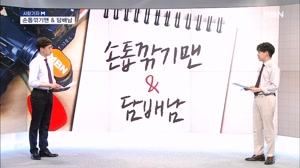 사회기자 M
손톱깎기맨 & 담배남
MBN
손톱깎기맨
&
담배남
MBN